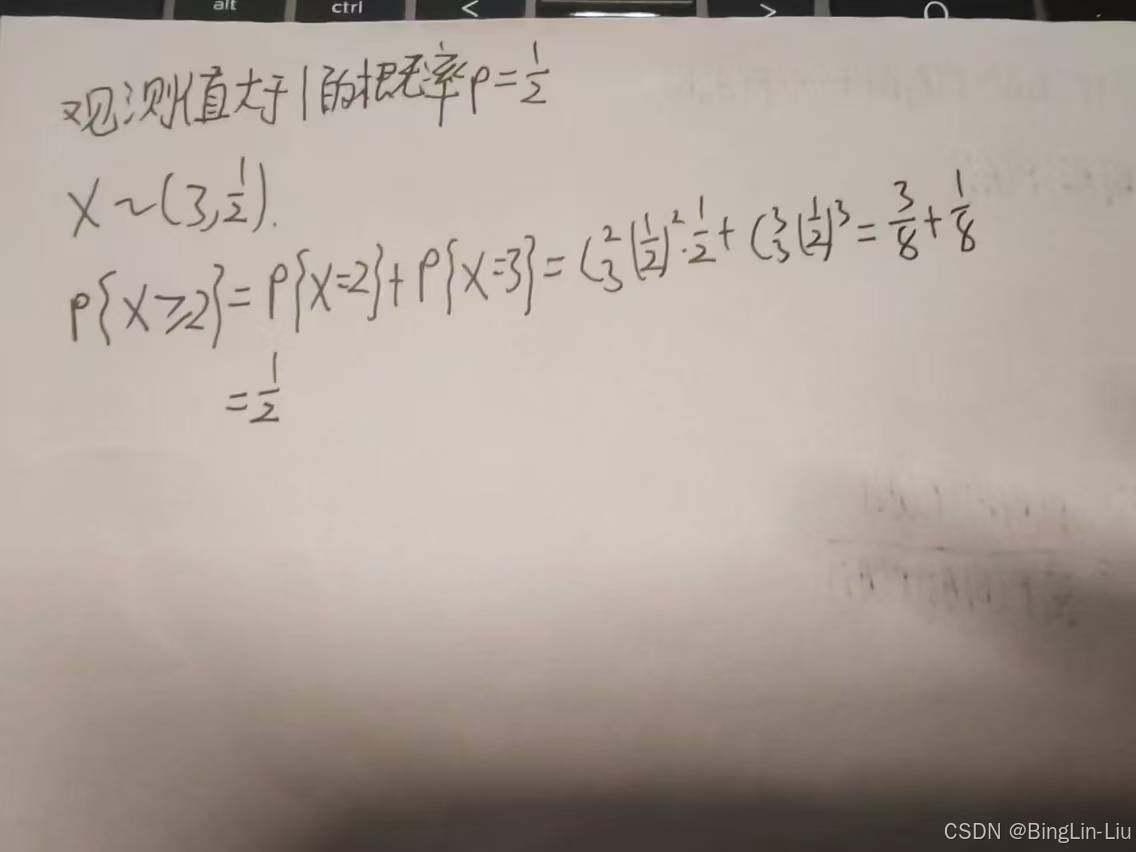 alt ctrl < >
观测值大于1的概率p=1/2
X~(3,1/2).
P{X≥2}=P{X=2}+P{X=3}=C₃²(1/2)²·1/2+C₃³(1/2)³=3/8+1/8
=1/2
CSDN @BingLin-Liu